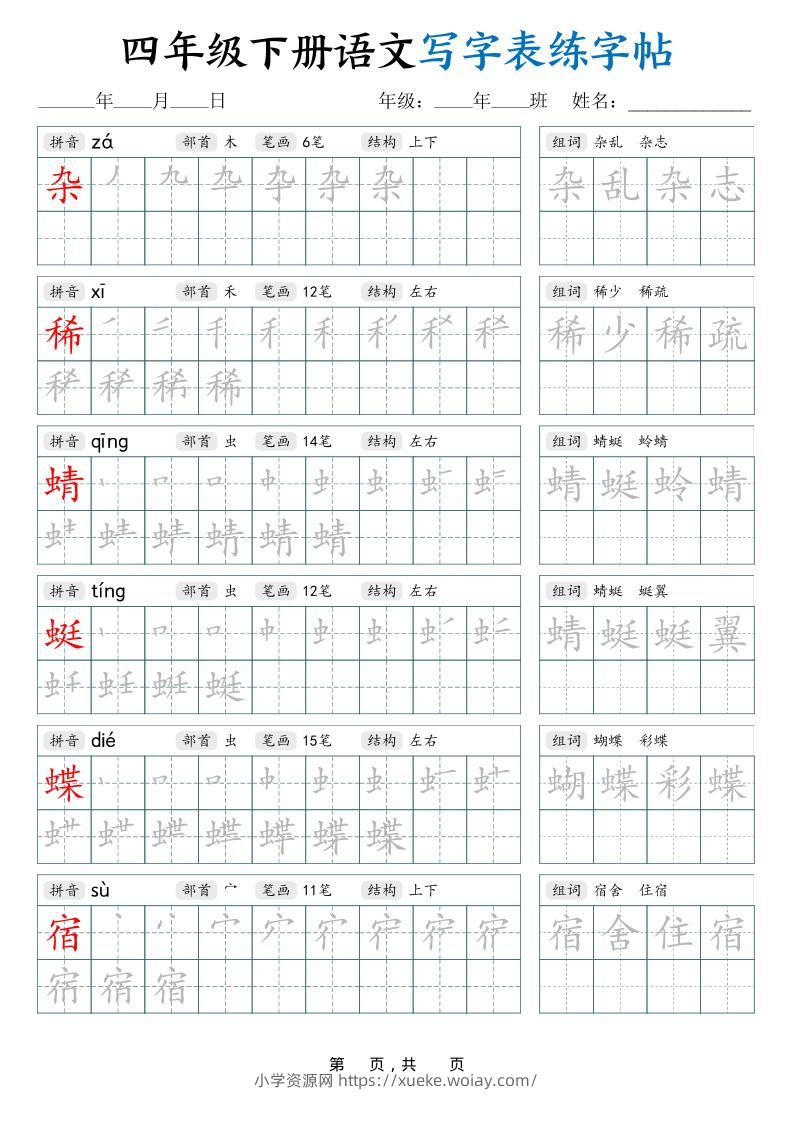 四年级下册语文写字表练字帖
______年____月____日 年级：____年____班 姓名：____________
拼音 zá 部首 木 笔画 6笔 结构 上下 组词 杂乱 杂志
杂 杂 杂乱杂志
拼音 xī 部首 禾 笔画 12笔 结构 左右 组词 稀少 稀疏
稀 稀少稀疏
稀
拼音 qīng 部首 虫 笔画 14笔 结构 左右 组词 蜻蜓 蛉蜻
蜻 蜻蜓蛉蜻
蜻
拼音 tíng 部首 虫 笔画 12笔 结构 左右 组词 蜻蜓 蜓翼
蜓 蜻蜓蜓翼
蜓
拼音 dié 部首 虫 笔画 15笔 结构 左右 组词 蝴蝶 彩蝶
蝶 蝴蝶彩蝶
蝶
拼音 sù 部首 宀 笔画 11笔 结构 上下 组词 宿舍 住宿
宿 宿舍住宿
宿
第 页，共 页
小学资源网 https://xueke.woiay.com/